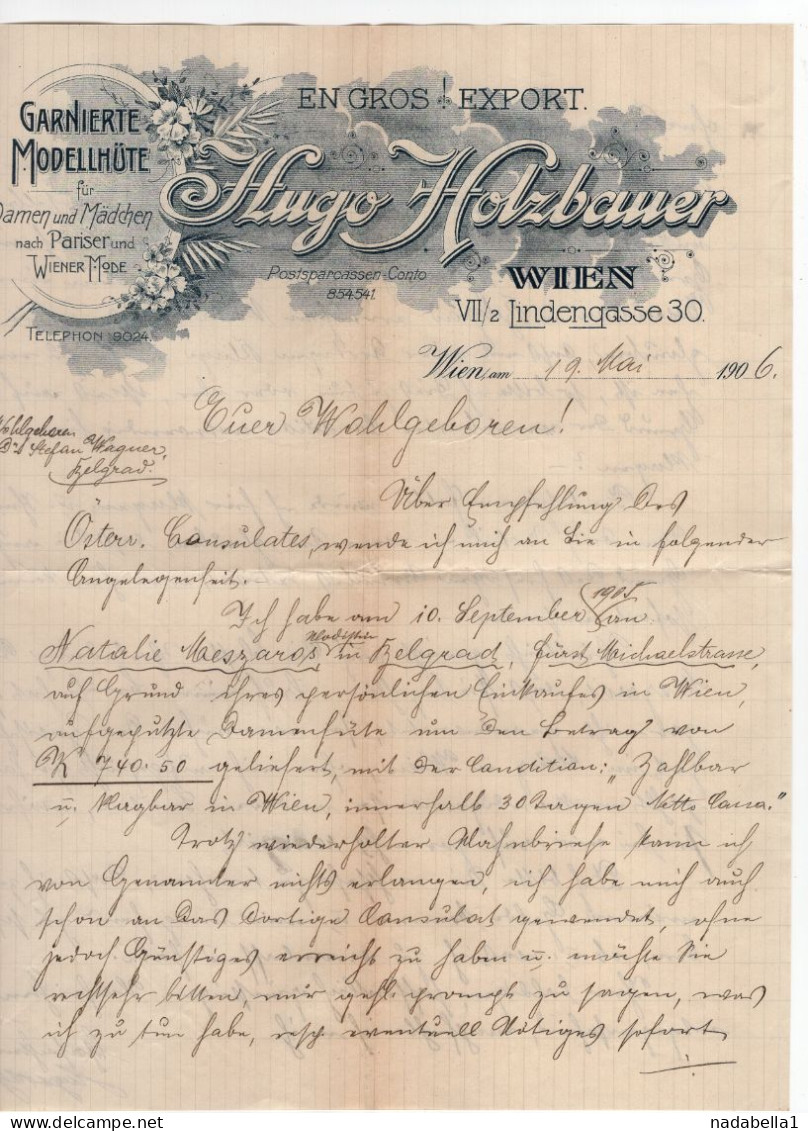 EN GROS ! EXPORT.
GARNIERTE
MODELLHÜTE
für
Damen und Mädchen
nach Pariser und
WIENER MODE
TELEPHON 9024.
Hugo Holzbauer
Postsparcassen-Conto
854.541.
WIEN
VII/2 Lindengasse 30.
Wien, am 19. Mai 1906.
Euer Wohlgeboren!
Wohlgeboren
Dr Stefan Wagner,
Belgrad.
Über Empfehlung des
Österr. Consulates, wende ich mich an Sie in folgender
Angelegenheit.
Ich habe am 10. September 1905 an
Natalie Meszaros, Modistin in Belgrad, Fürst Michaelstrasse,
auf Grund ihres persönlichen Einkaufes in Wien,
aufgeputzte Damenhüte um den Betrag von
K 740.50 geliefert, mit der Condition: "Zahlbar
u. klagbar in Wien, innerhalb 30 Tagen Netto Cassa."
Trotz wiederholter Mahnbriefe kann ich
von Genannter nichts erlangen, ich habe mich auch
schon an das dortige Consulat gewendet, ohne
jedoch Günstiges erreicht zu haben u. möchte Sie
recht sehr bitten, mir gefl. prompt zu sagen, was
ich zu tun habe, resp. eventuell Nötiges sofort
nadabella1